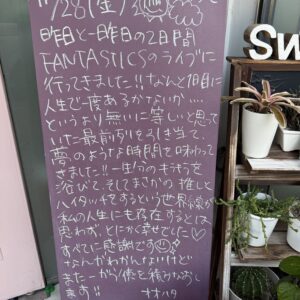 11/28(金)
昨日と一昨日の2日間
FANTASTICSのライブに
行ってきました!!なんと1日目に
人生で一度あるかないか…
というより無いに等しいと思って
いた最前列を引き当て、
夢のような時間を味わって
きました!!一生分のキラキラを
浴びて、そしてまさかの推しと
ハイタッチをするという世界線が
私の人生にも存在するとは
思わず、とにかく幸せでした♡
すべてに感謝です
なんかわかんないけど
また一から徳を積みなおし
ます!!
Sw